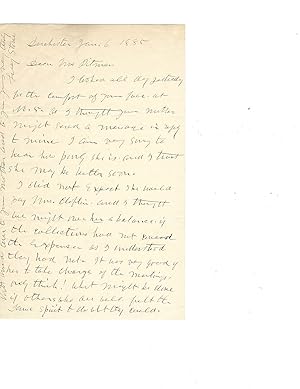 Dorchester Jan. 6 1885
Dear Mrs Pitman
I looked all day yesterday
for the comfort of your face at
No. 5 as I thought your mother
might send a message in reply
to mine. I am very sorry to
hear how poorly she is and I trust
she may be better soon.
I did not expect she would
pay Mrs. and I thought
we might owe her a balance, if
the collections had not exceeded
the expenses as I understood
they had not. It was very good of
her to take charge of the meetings.
only think! what might be done
if others who are well felt the
same spirit to do what they could.